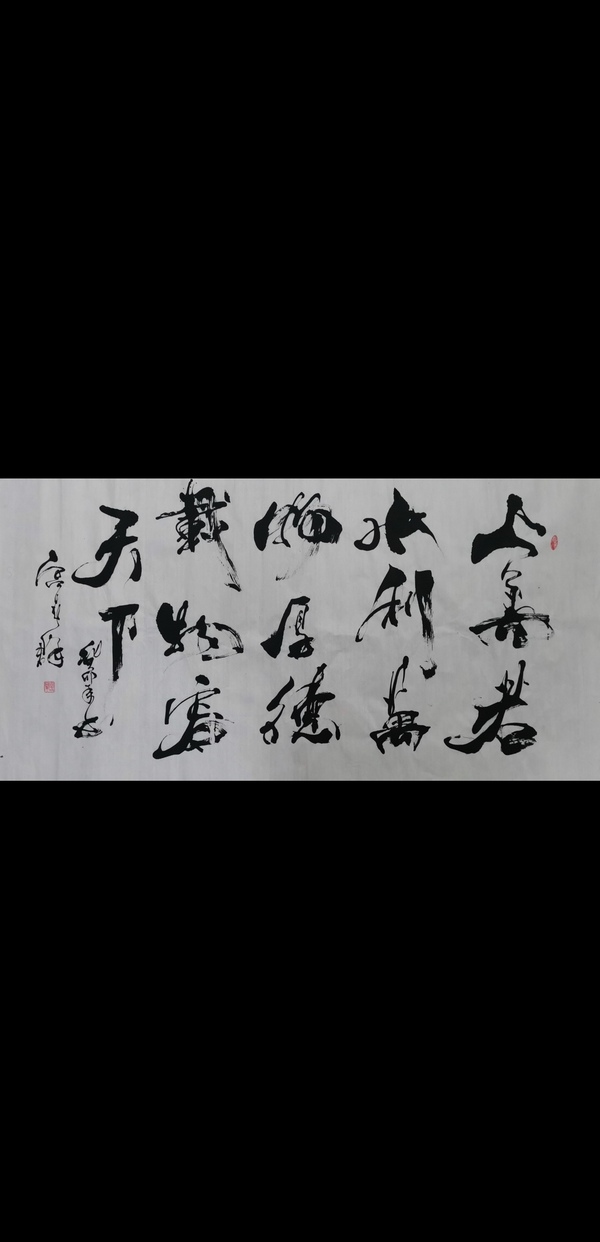 上善若
水利萬
物厚德
載物
天下
癸卯年